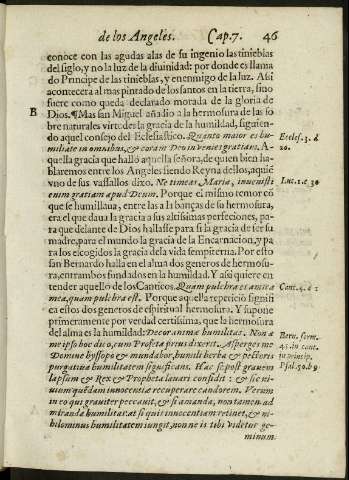 de los Angeles. Cap.7. 46
conoce con las agudas alas de su ingenio las tinieblas
del siglo, y no la luz de la diuinidad: por donde es llama
do Principe de las tinieblas, y enemigo de la luz. Assi
acontecera al mas pintado de los santos en la tierra, sino
fuere como queda declarado morada de la gloria de
B Dios. ¶Mas san Miguel añadio a la hermosura de las so
bre naturales virtudes la gracia de la humildad, siguien-
do aquel consejo del Ecclesiastico. Quanto maior es hu-
Eccles. 3. d
miliate in omnibus, & coram Deo inuenies gratiam. A-
20.
quella gracia que halló aquella señora, de quien bien ha-
blaremos entre los Angeles siendo Reyna dellos, aquiẽ
vno de sus vassallos dixo. Ne timeas, Maria, inuenisti
Luc. 1. c 30
enim gratiam apud Deum. Porque el mismo temor cõ
que se humillaua, entre las a la banças de su hermosura,
era el que daua la gracia a sus altissimas perfeciones, pa-
ra que delante de Dios hallasse para si la gracia de ser su
madre, para el mundo la gracia de la Encarnacion, y pa
ra los escogidos la gracia dela vida sempiterna. Por esto
san Bernardo halla en el alma dos generos de hermosu-
ra, entrambos fundados en la humildad. Y assi quiere en
tender aquello de los Canticos. Quam pulchra es amica
Cant. 4. a 1
mea, quam pulchra est. Porque aquella repetició signifi
ca estos dos generos de espiritual hermosura. Y supone
primeramente por verdad certissima, que la hermosura
del alma es la humildad: Decor animæ humilitas. Non a
Bern. serm.
me ipso hoc dico, cum Profeta prius dixerit. Asperges me
45. in cant.
Domine hyssopo & mundabor, humili herba & pectoris
in princip.
purgatiua humilitatem significans. Hac se post grauem
Psal. 50. b 9
lapsum & Rex & Propheta lauari confidit : & sic ni-
ueum quẽdam innocentiæ recuperare candorem. Verum
in eo qui grauiter peccauit, & si amanda, non tamen ad
miranda humilitas: at si quis innocentiam retinet, & ni-
hilominus humilitatem iungit, nonne is tibi videtur ge-
minum